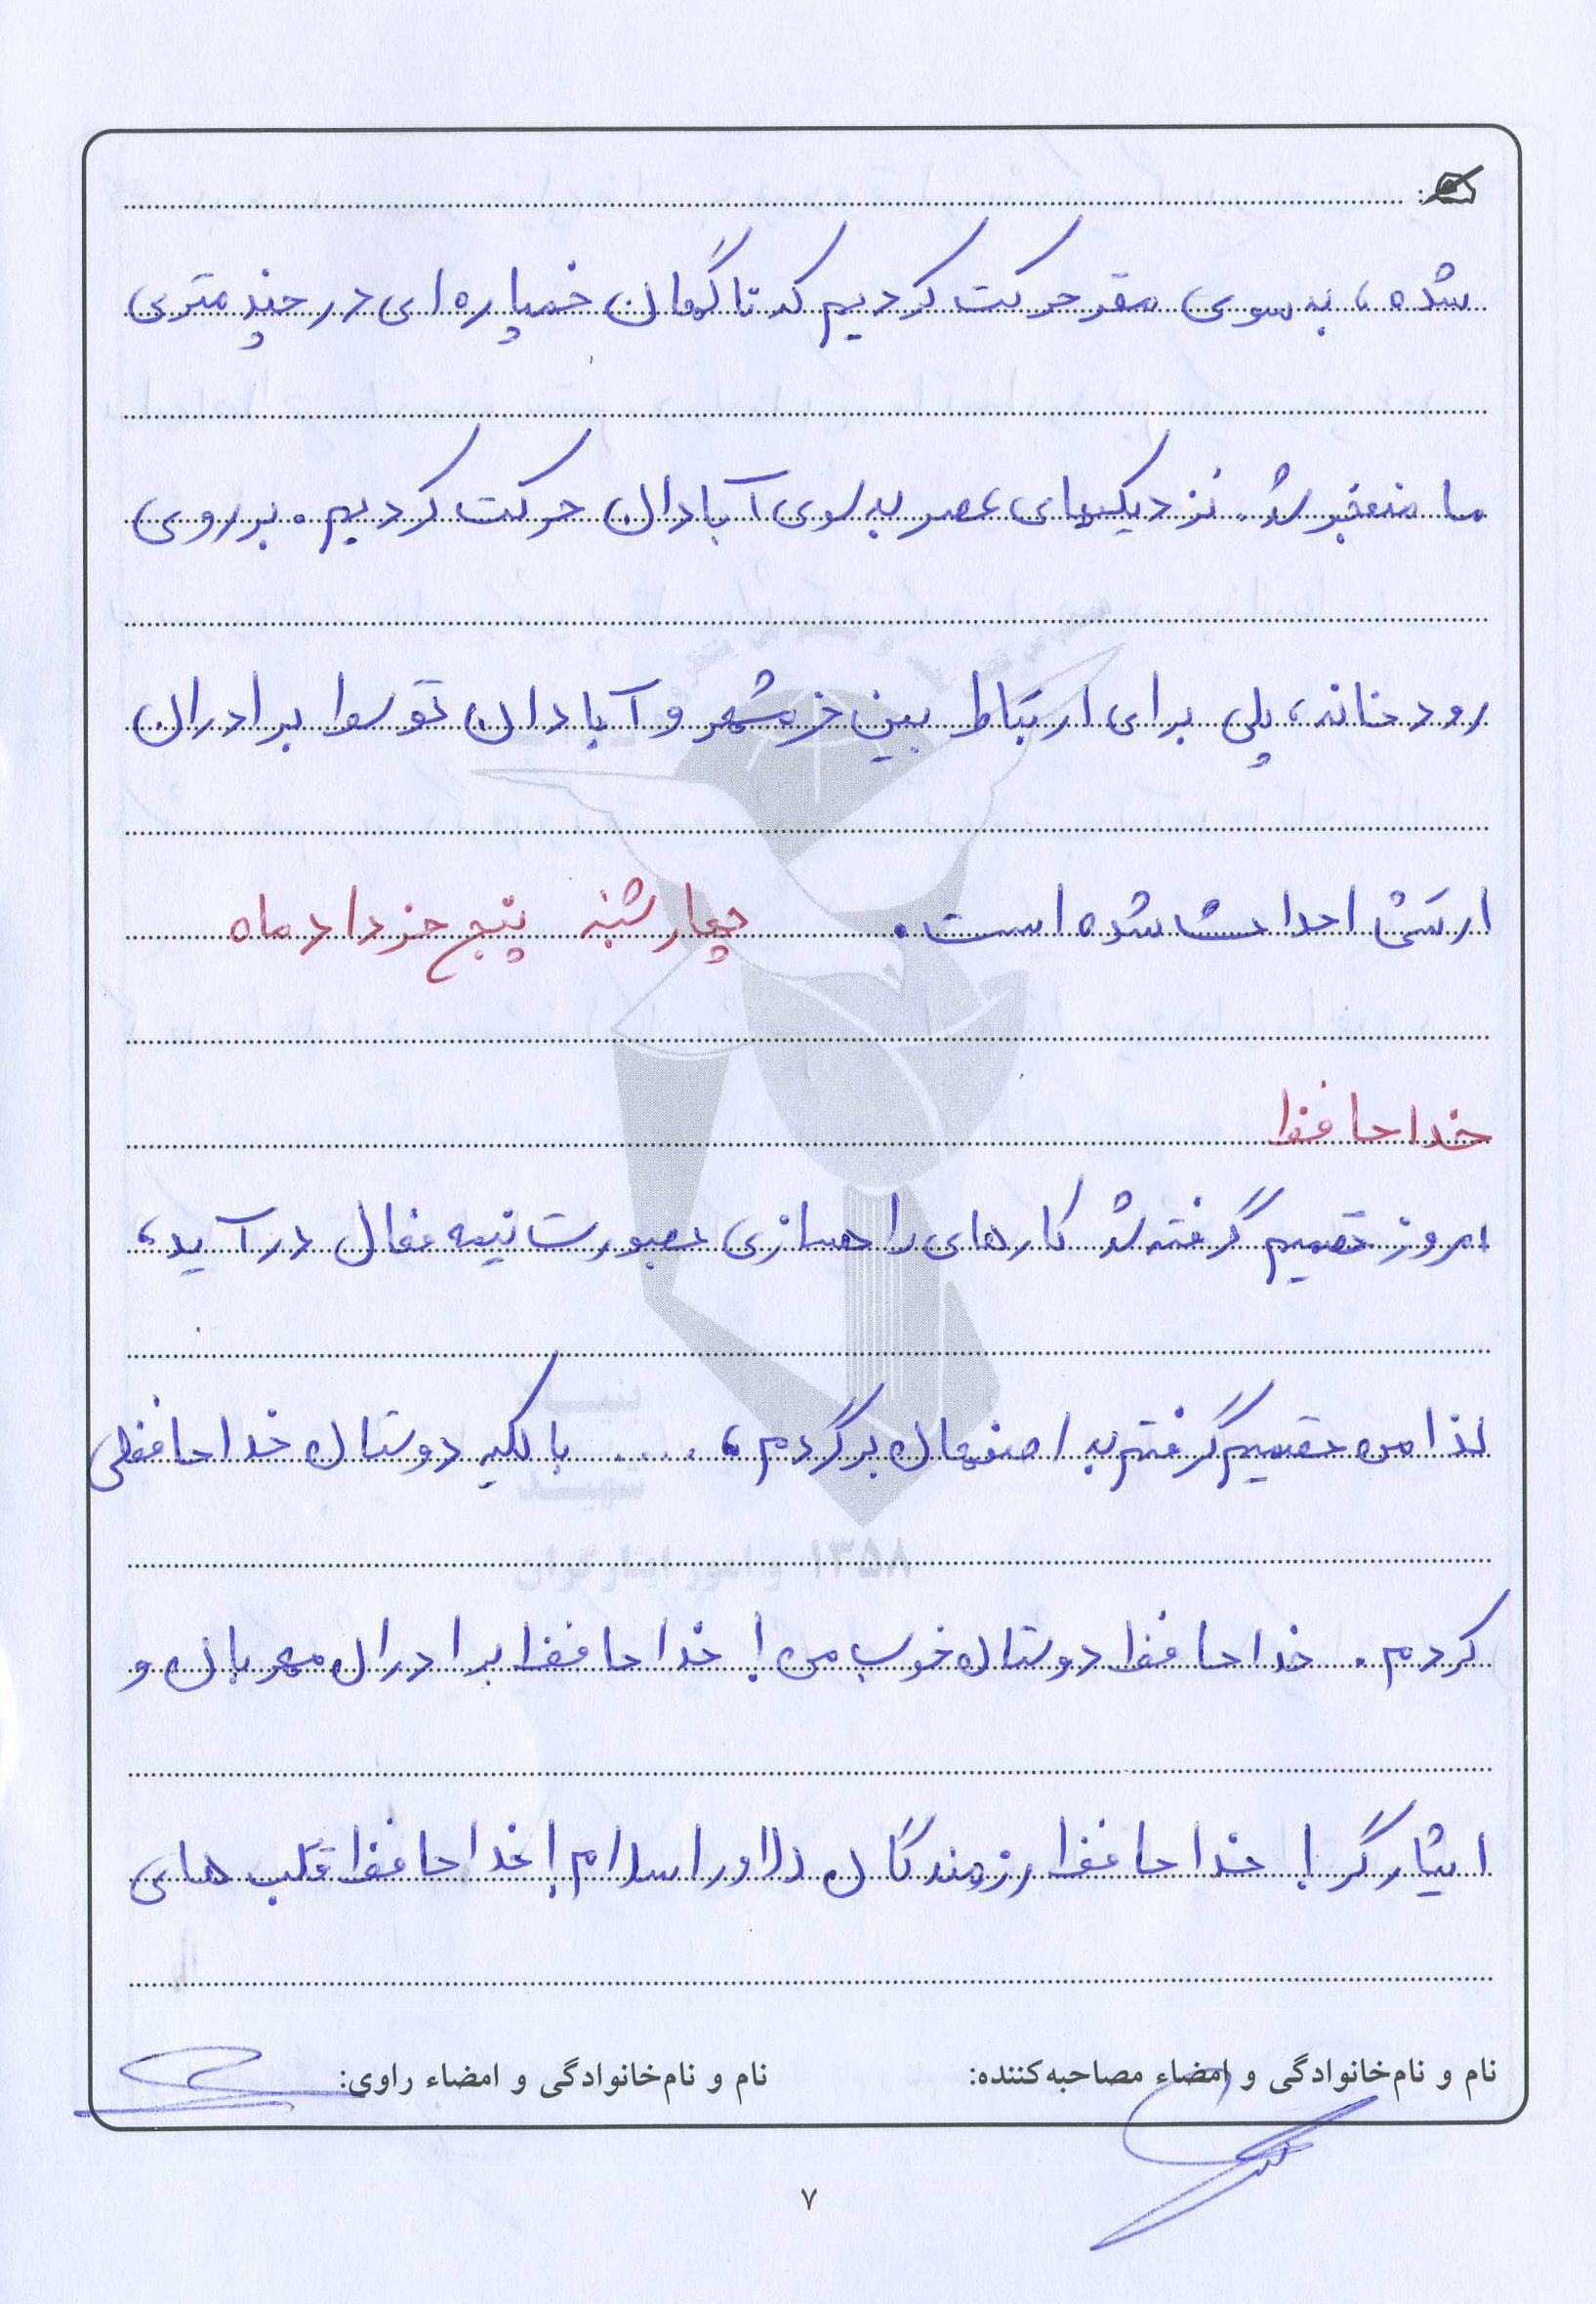 شده، به سوی مقر حرکت کردیم که ناگهان خمپاره‌ای در چند متری
ما منفجر شد. نزدیکیهای عصر به سوی آبادان حرکت کردیم. بر روی
رودخانه، پلی برای ارتباط بین خرمشهر و آبادان توسط برادران
ارتشی احداث شده است. چهارشنبه پنج خرداد ماه
خداحافظ
امروز تصمیم گرفته شد کارهای راهسازی بصورت نیمه فعال درآید،
لذا من تصمیم گرفتم به اصفهان برگردم، ..... با کلیه دوستان خداحافظی
کردم. خداحافظ دوستان خوب من! خداحافظ برادران مهربان و
ایثارگر! خداحافظ رزمندگان دلاور اسلام! خداحافظ قلب های
نام و نام‌خانوادگی و امضاء مصاحبه‌کننده: نام و نام‌خانوادگی و امضاء راوی:
۷